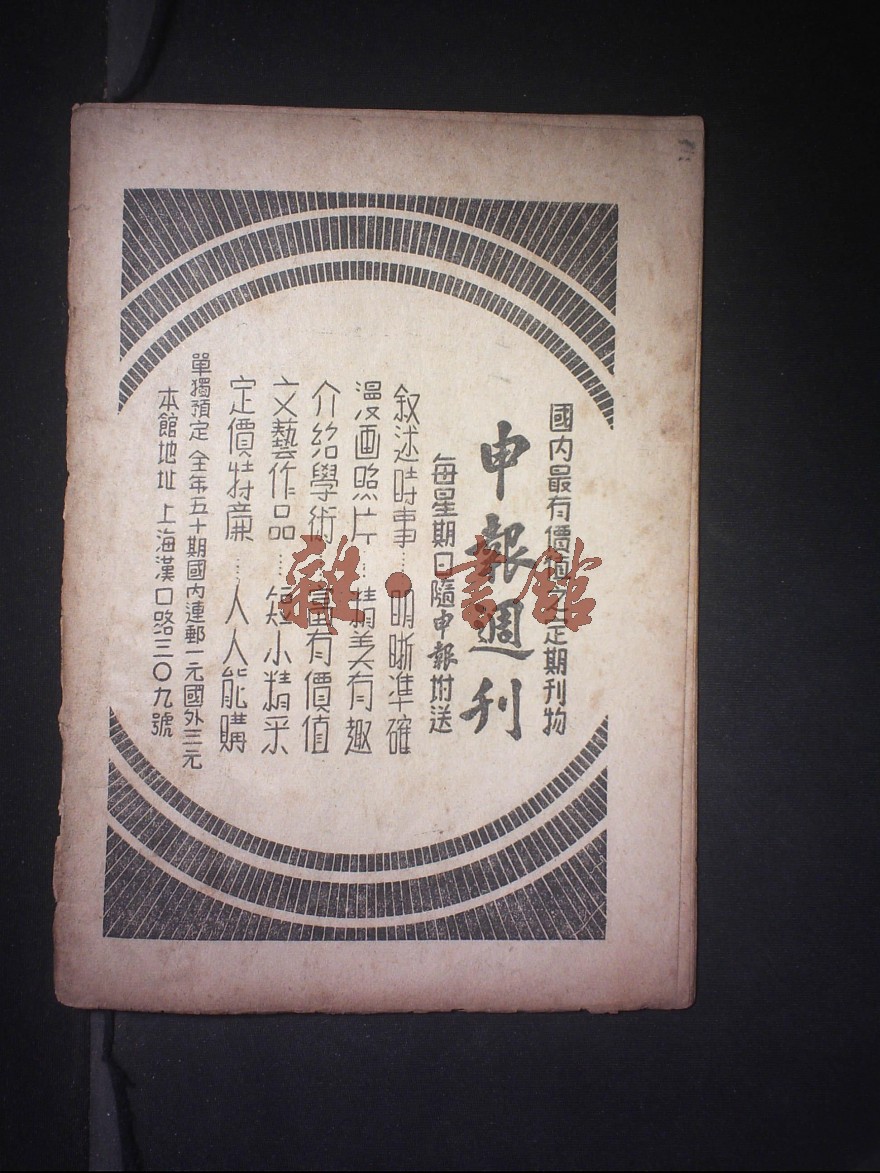 國内最有價值之定期刊物
申報週刊
每星期日隨申報坿送
叙述時事……明晰準確
漫画照片……精美有趣
介紹學術……富有價值
文藝作品……短小精采
定價特廉……人人能購
單獨預定 全年五十期國内連郵一元國外三元
本館地址 上海漢口路三〇九號
雜·書館